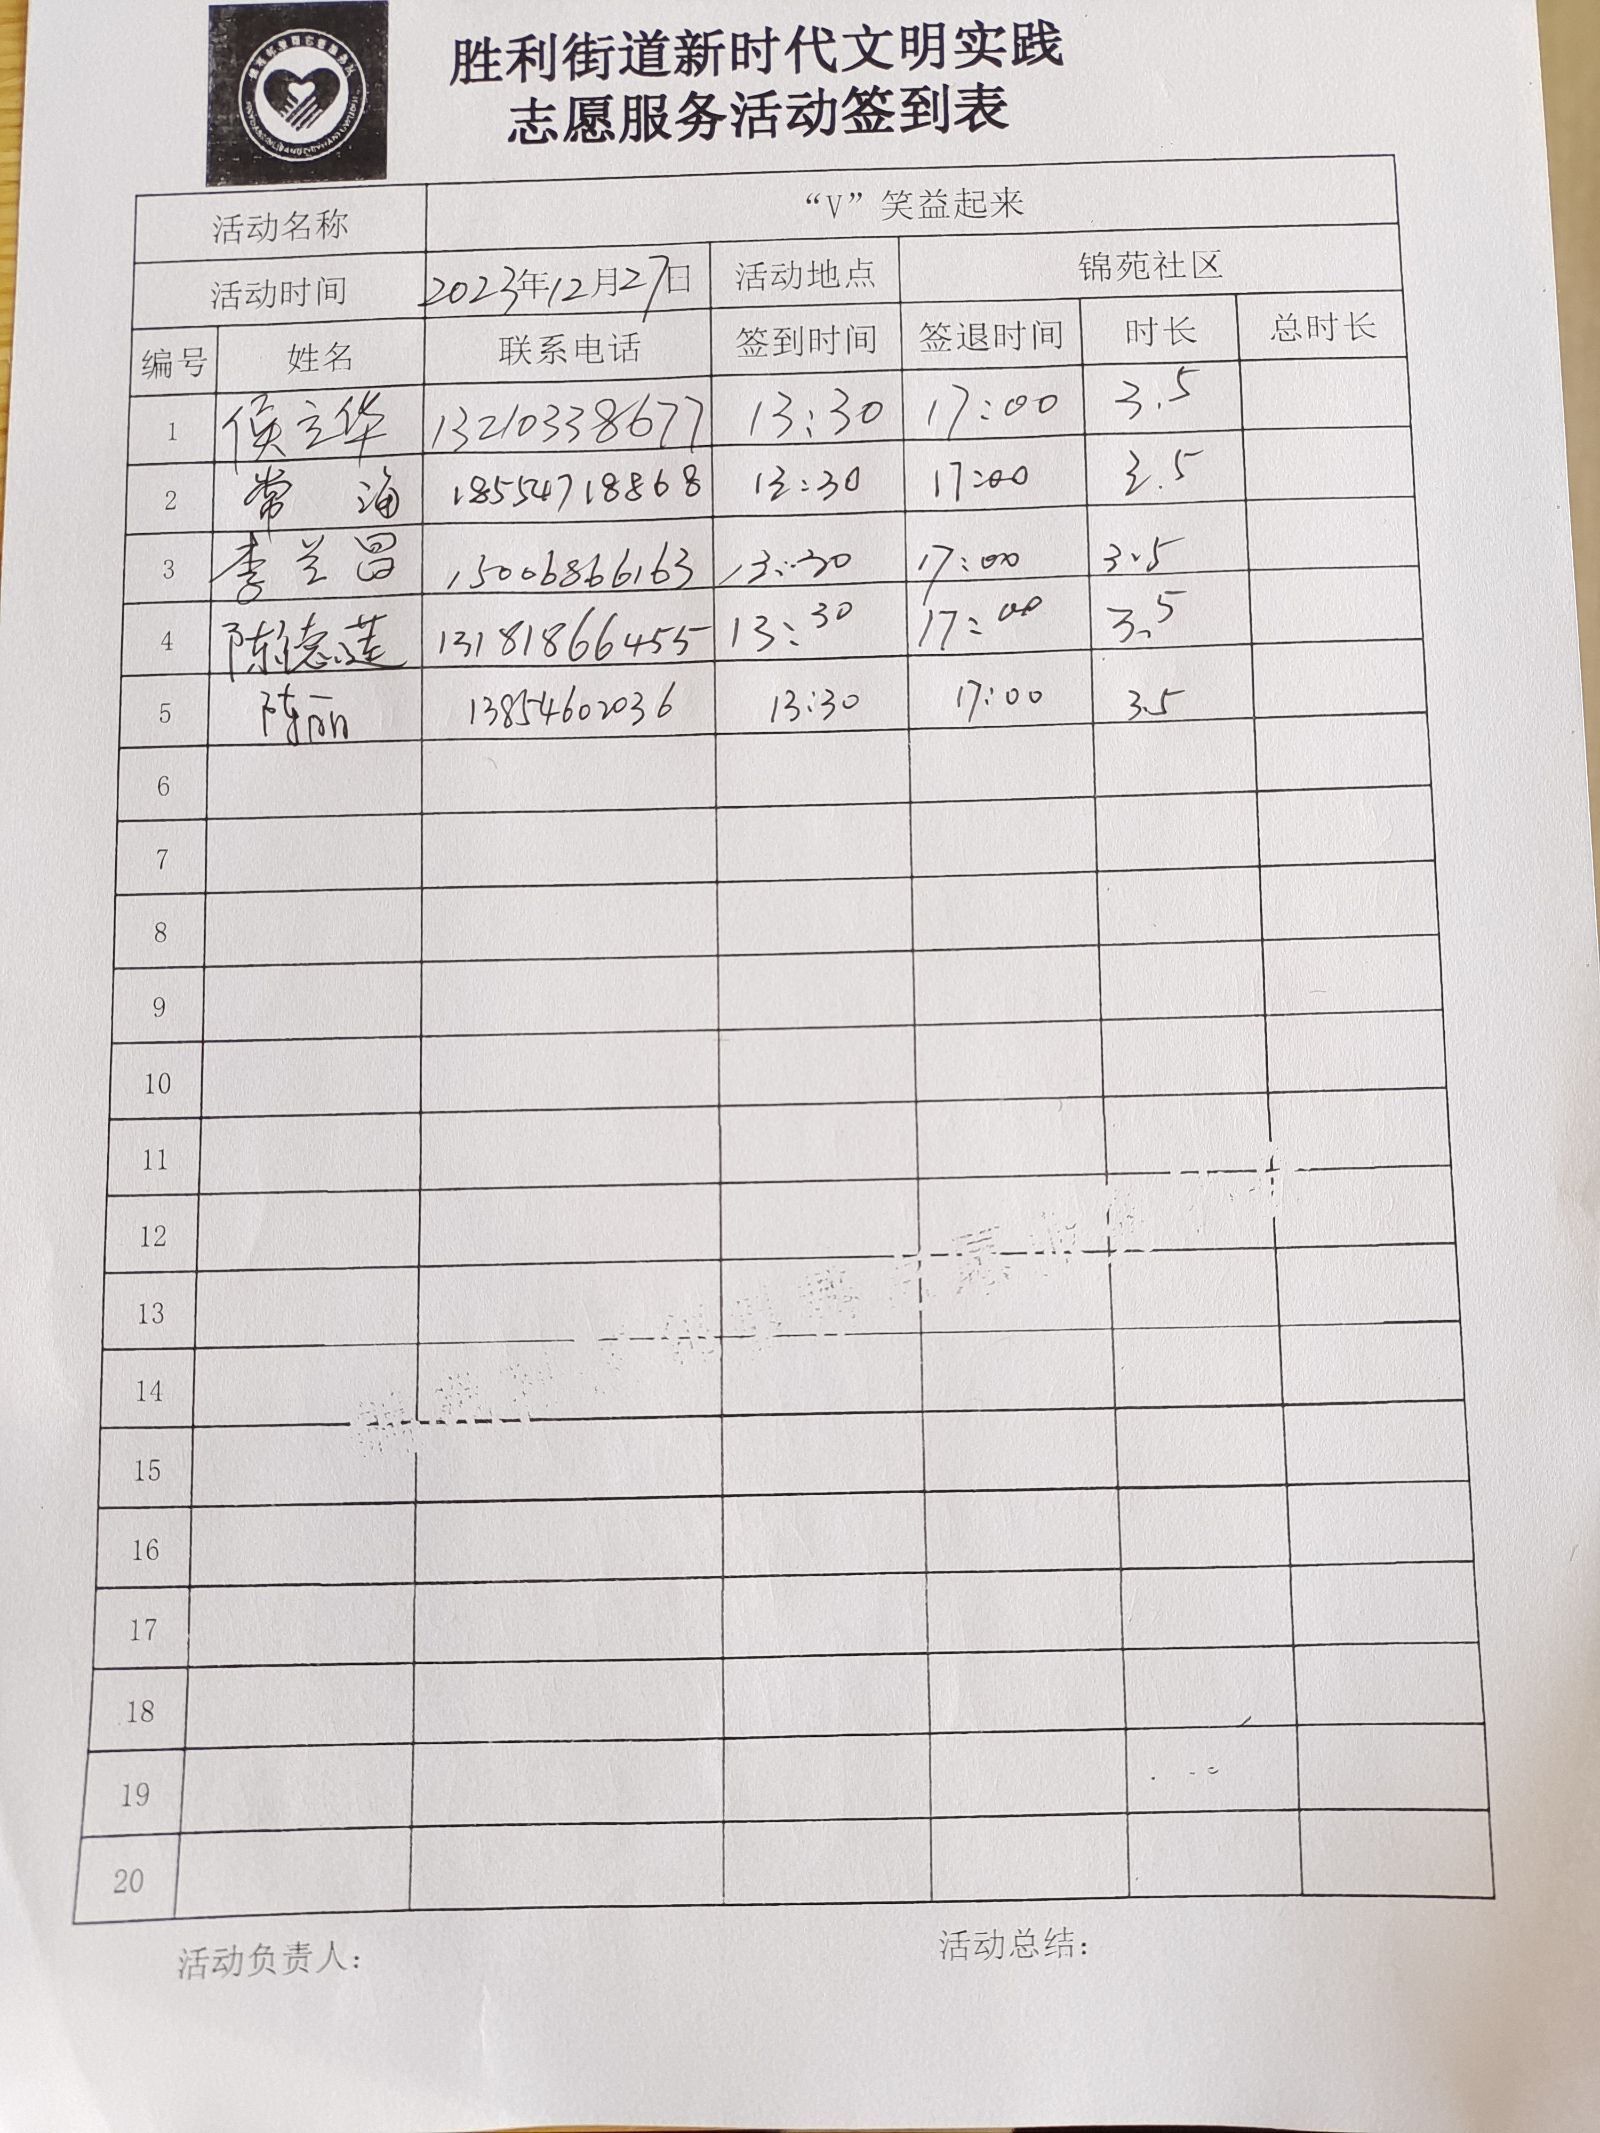 胜利街道新时代文明实践
志愿服务活动签到表
活动名称 “V”笑益起来
活动时间 2023年12月27日 活动地点 锦苑社区
编号 姓名 联系电话 签到时间 签退时间 时长 总时长
1 侯立华 13210338677 13:30 17:00 3.5
2 常海 18554718868 13:30 17:00 3.5
3 李兰昌 15006866163 13:30 17:00 3.5
4 陈德莲 13181866455 13:30 17:00 3.5
5 陈丽 13854602036 13:30 17:00 3.5
6
7
8
9
10
11
12
13
14
15
16
17
18
19
20
活动负责人： 活动总结：